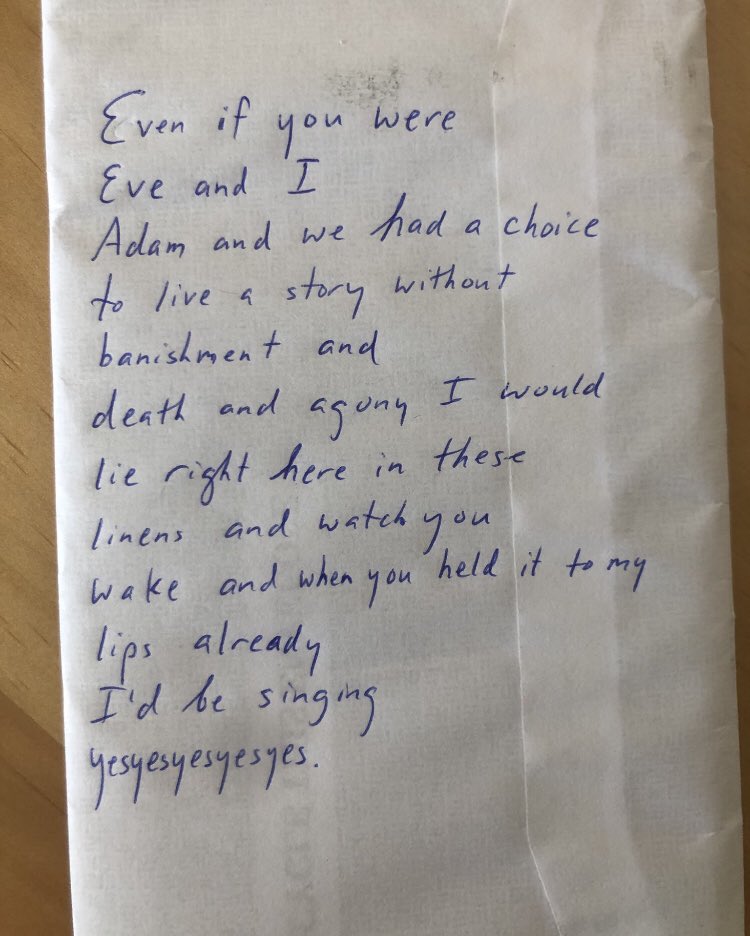 Even if you were
Eve and I
Adam and we had a choice
to live a story without
banishment and
death and agony I would
lie right here in these
linens and watch you
wake and when you held it to my
lips already
I'd be singing
yesyesyesyesyes.